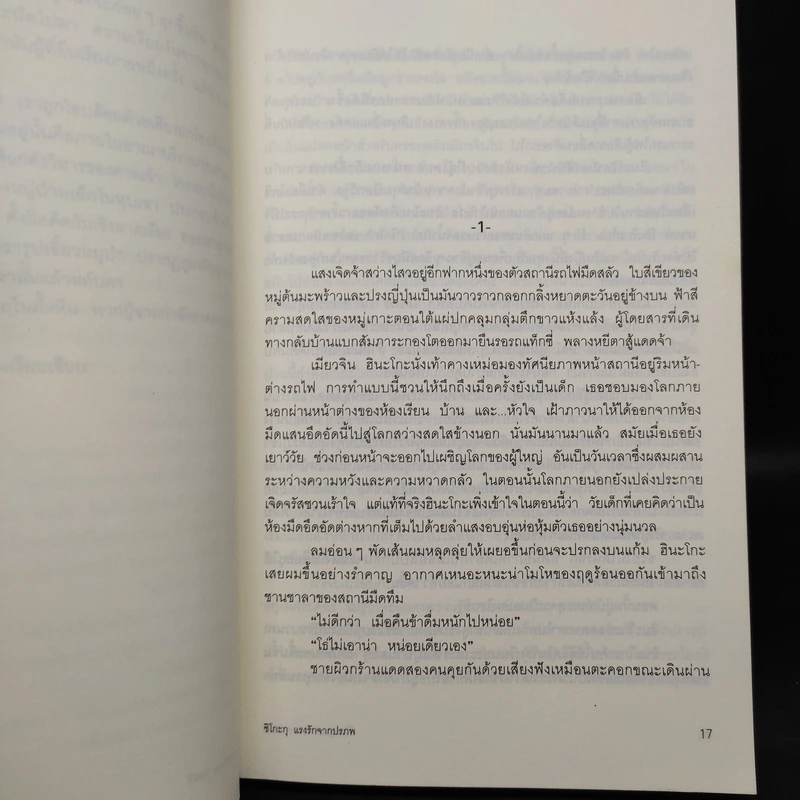 -1-
แสงเจิดจ้าสว่างไสวอยู่อีกฟากหนึ่งของตัวสถานีรถไฟมืดสลัว ใบสีเขียวของ
หมู่ต้นมะพร้าวและปรงญี่ปุ่นเป็นมันวาวราวกลอกกลิ้งหยาดตะวันอยู่ข้างบน ฟ้าสี
ครามสดใสของหมู่เกาะตอนใต้แผ่ปกคลุมกลุ่มตึกขาวแห้งแล้ง ผู้โดยสารที่เดิน
ทางกลับบ้านแบกสัมภาระกองโตออกมายืนรอรถแท็กซี่ พลางหยีตาสู้แดดจ้า
เมียวจิน ฮินะโกะนั่งเท้าคางเหม่อมองทัศนียภาพหน้าสถานีอยู่ริมหน้า-
ต่างรถไฟ การทำแบบนี้ชวนให้นึกถึงเมื่อครั้งยังเป็นเด็ก เธอชอบมองโลกภาย
นอกผ่านหน้าต่างของห้องเรียน บ้าน และ...หัวใจ เฝ้าภาวนาให้ได้ออกจากห้อง
มืดแสนอึดอัดนี้ไปสู่โลกสว่างสดใสข้างนอก นั่นมันนานมาแล้ว สมัยเมื่อเธอยัง
เยาว์วัย ช่วงก่อนหน้าจะออกไปเผชิญโลกของผู้ใหญ่ อันเป็นวันเวลาซึ่งผสมผสาน
ระหว่างความหวังและความหวาดกลัว ในตอนนั้นโลกภายนอกยังเปล่งประกาย
เจิดจรัสชวนเร้าใจ แต่แท้ที่จริงฮินะโกะเพิ่งเข้าใจในตอนนี้ว่า วัยเด็กที่เคยคิดว่าเป็น
ห้องมืดอึดอัดต่างหากที่เต็มไปด้วยลำแสงอบอุ่นห่อหุ้มตัวเธออย่างนุ่มนวล
ลมอ่อนๆ พัดเส้นผมหลุดลุ่ยให้เผยอขึ้นก่อนจะปรกลงบนแก้ม ฮินะโกะ
เสยผมขึ้นอย่างรำคาญ อากาศเหนอะหนะน่าโมโหของฤดูร้อนออกันเข้ามาถึง
ชานชาลาของสถานีมืดทึม
“ไม่ดีกว่า เมื่อคืนข้าดื่มหนักไปหน่อย”
“โธ่ไม่เอาน่า หน่อยเดียวเอง”
ชายผิวกร้านแดดสองคนคุยกันด้วยเสียงฟังเหมือนตะคอกขณะเดินผ่าน
ชิโกะกุ แรงรักจากปรภพ
17